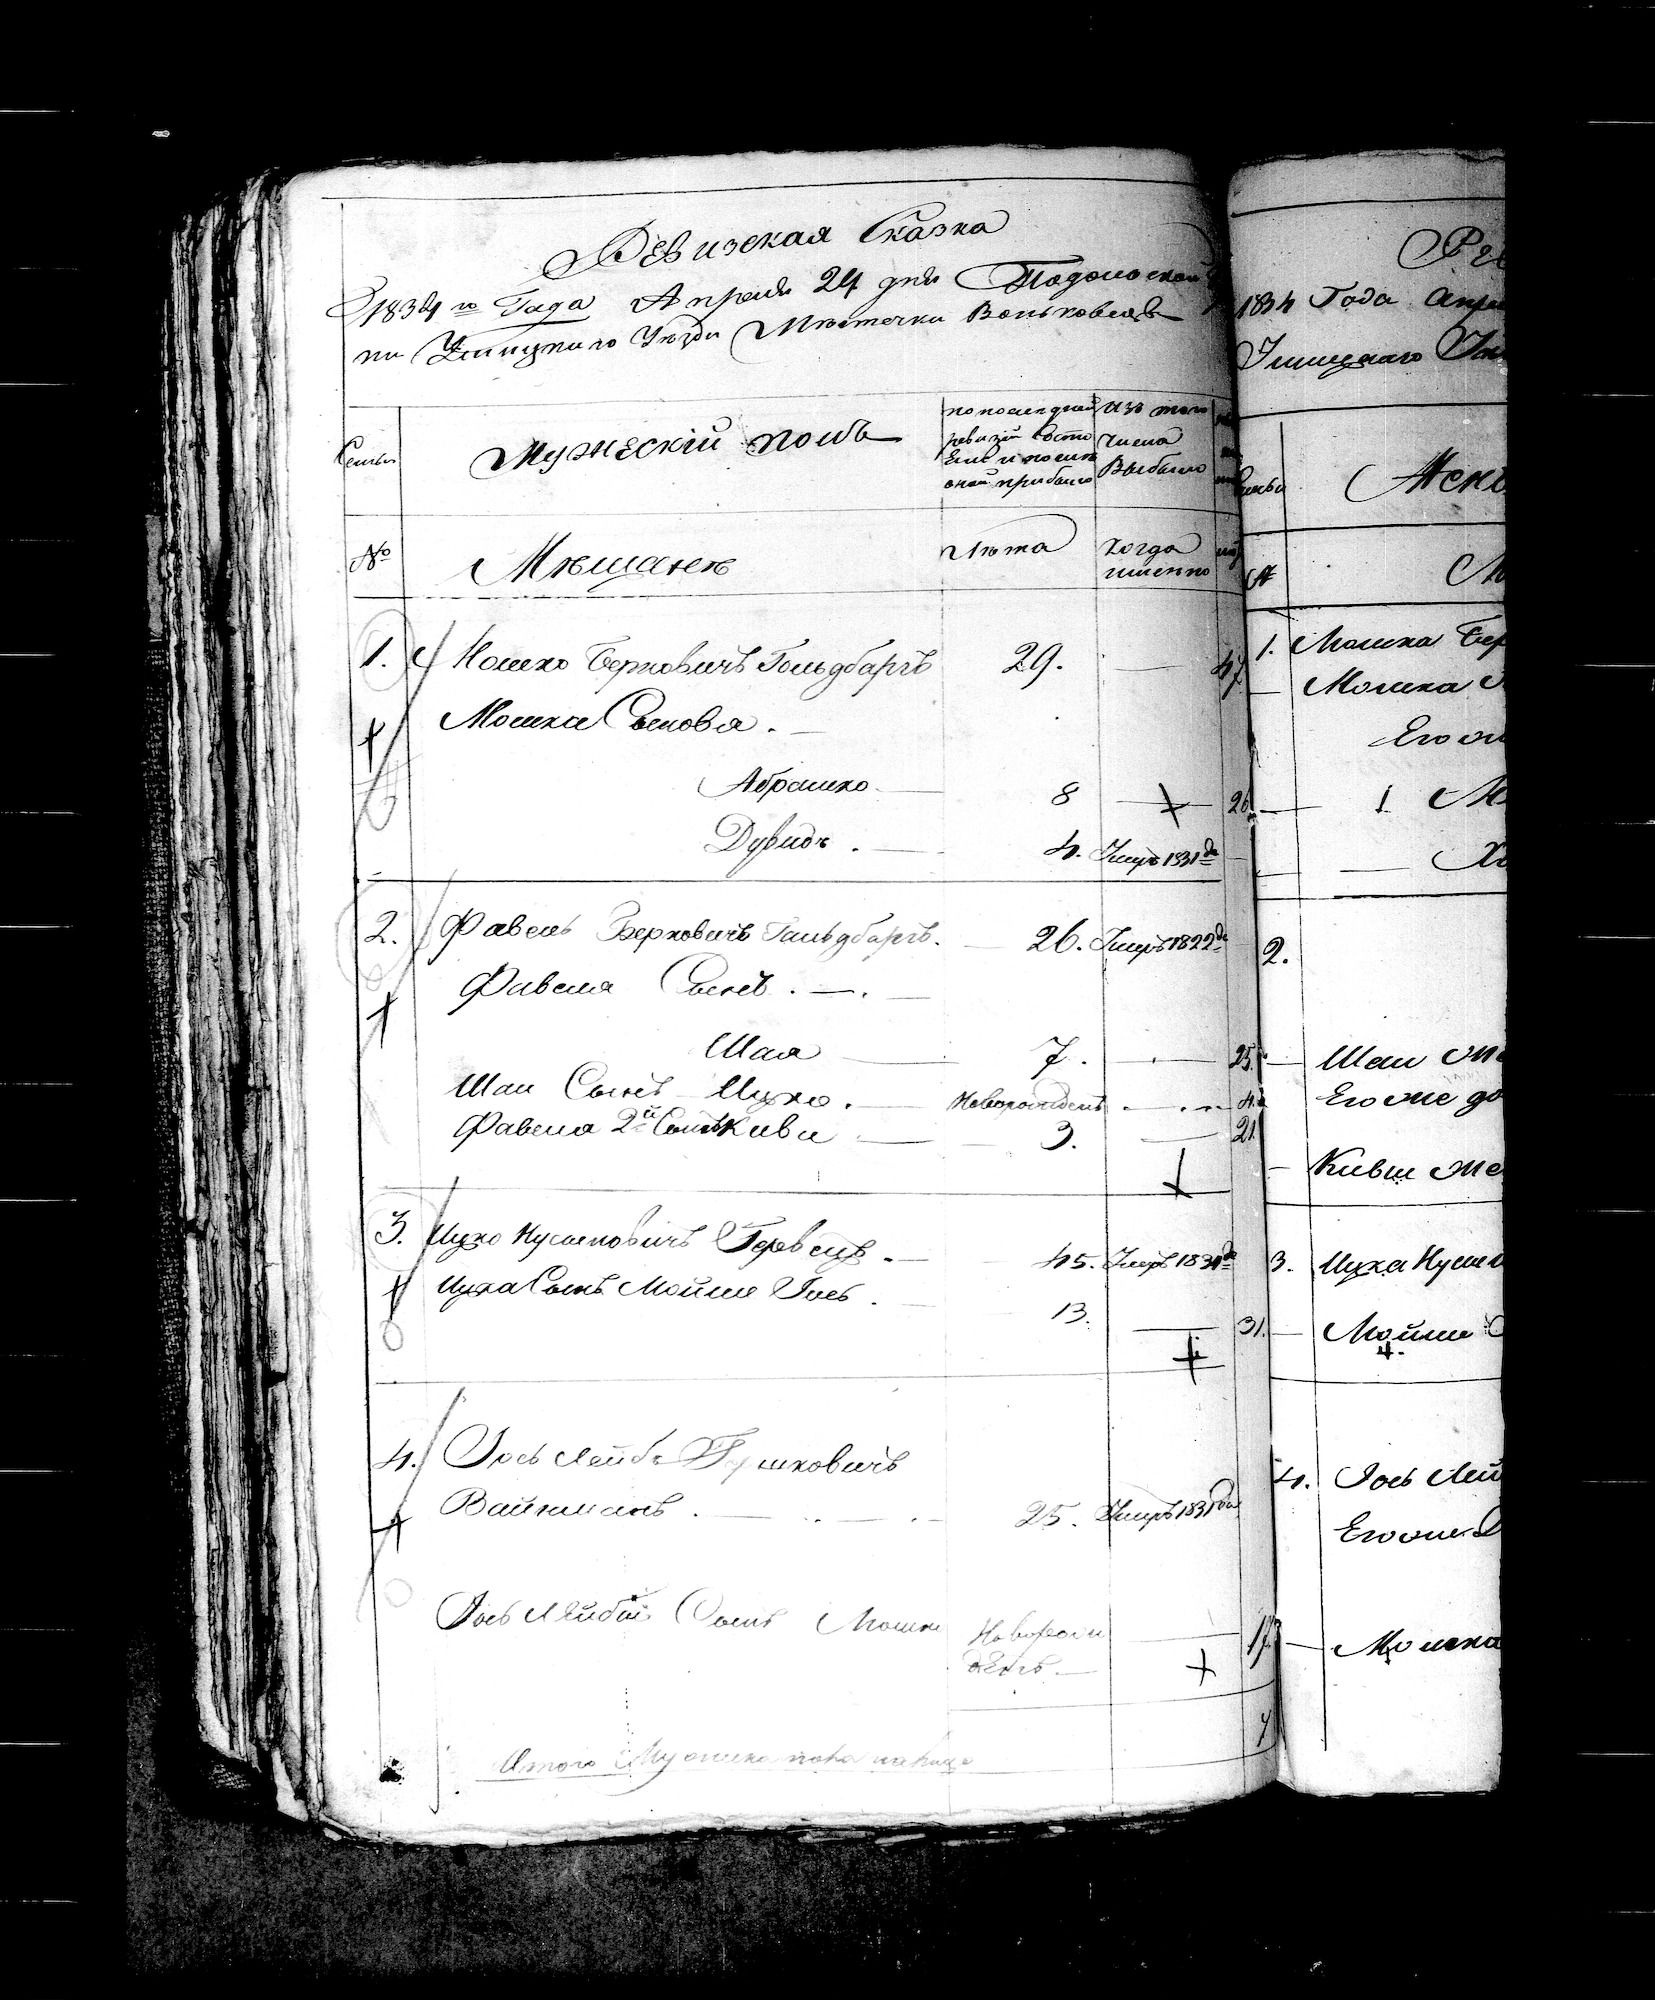 Ревизская Сказка
1834 го Года Апреля 24 дня Подольской
Ушицкаго Уезда Местечка Воньковецъ
Семьи
Мужескій полъ
по последней
ревизіи состо
яло и после
оной прибыло
изъ того
числа
выбыло
№
Мещане
Лета
когда
именно
1. Мошко Берковичъ Гольдбаргъ 29. — 47
Мошка Сыновя. —
Абрашко — 8 — 26
Дувидъ. — 4. Умеръ 1831 да —
2. Фавель Берковичъ Гольдбаргъ. — 26. Умеръ 1822 да
Фавеля Сынъ. —.
Шая — 7. — 25
Шаи Сынъ Ицко. — Новорожденъ — 4
Фавеля 2й Сынъ Кива — 3. — 21
3. Ицко Нусымовичъ — 45. Умеръ 1831 да
Ицка Сынъ Мойше Іось. 13. — 31.
4. Іось Лейба Вайнманъ. — 25. Умеръ 1831 да
Іось Лейби Сынъ Мошко Новорож
денъ. — 17
Итого Мужеска пола на лицо 7
1834 Года Апре
Ушицкаго
Семьи
№
1. Мошка Бер
— Мошка
Его
— 1
—
2.
— Шаи же
Его же до
— Кивы же
3. Ицка Нусым
— Мойши
4. Іось Лей
Его же
— Мошка